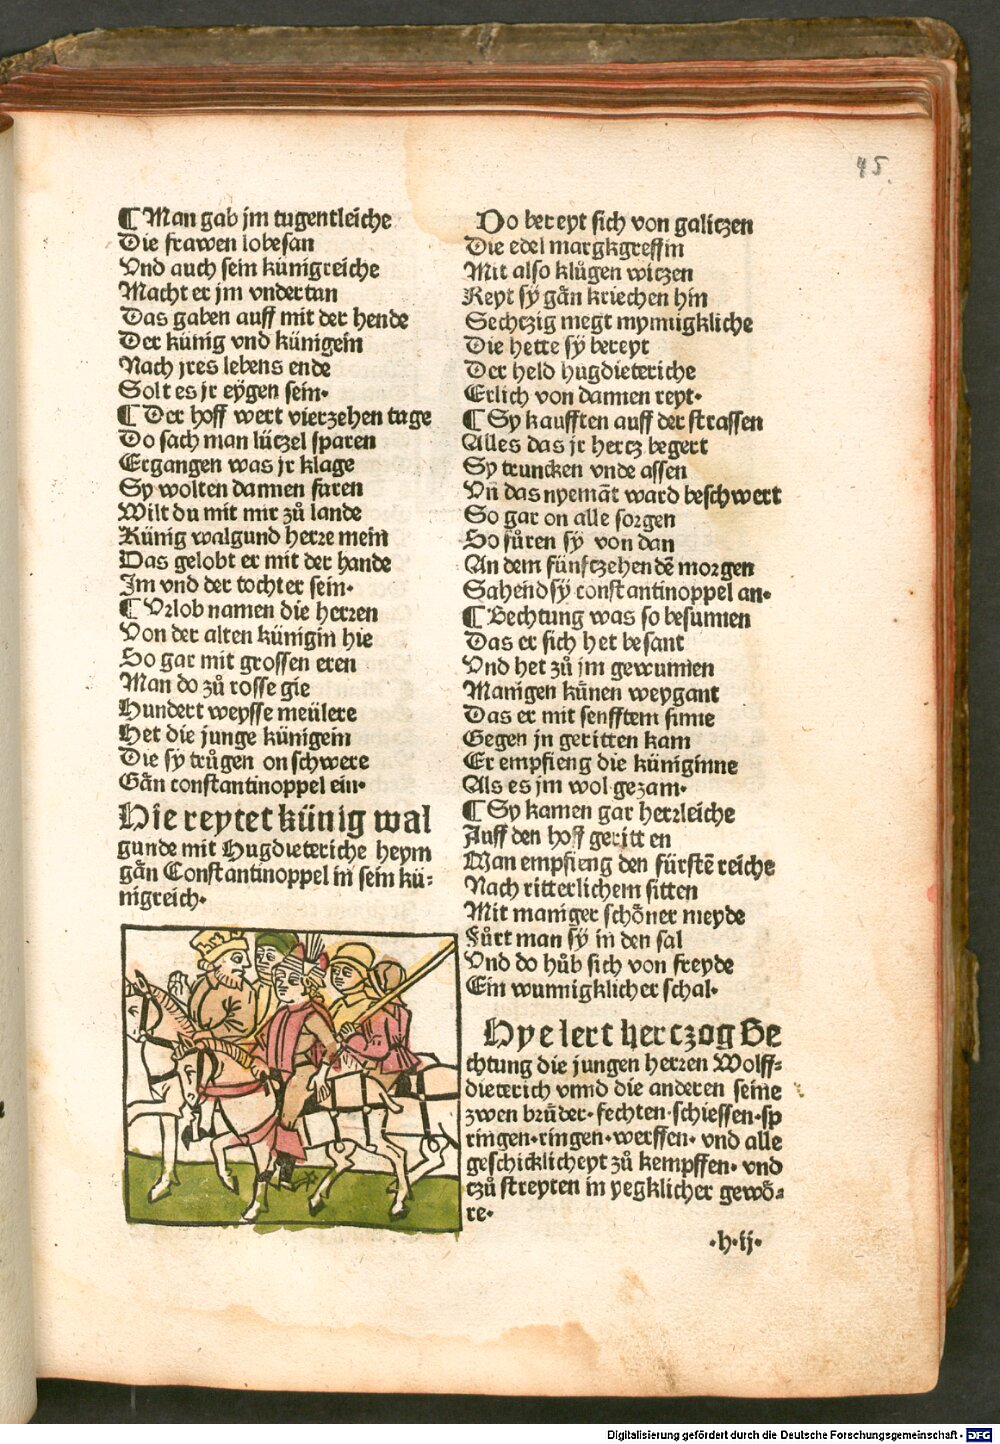 45.
¶ Man gab jm tugentleiche
Die frawen lobesan
Vnd auch sein künigreiche
Macht er jm vndertan
Das gaben auff mit der hende
Der künig vnd künigein
Nach jres lebens ende
Solt es jr eÿgen sein·
¶ Der hoff wert vierzehen tage
Do sach man lüczel sparen
Ergangen was jr klage
Sy wolten dannen faren
Wilt du mit mir zů lande
Künig walgund herre mein
Das gelobt er mit der hande
Im vnd der tochter sein·
¶ Vrlob namen die herren
Von der alten künigin hie
So gar mit grossen eren
Man do zů rosse gie
Hundert weysse meülere
Het die junge künigein
Die sy trůgen on schwere
Gãn constantinoppel ein·
Hie reytet künig wal
gunde mit Hugdieteriche heym
gãn Constantinoppel in sein kü:
nigreich·
Do bereyt sich von galiczen
Die edel margkgreffin
Mit also klůgen wiczen
Reyt sÿ gãn kriechen hin
Sechczig megt mynnigkliche
Die hette sÿ bereyt
Der held hugdieteriche
Erlich von dannen reyt·
¶ Sy kaufften auff der strassen
Alles das jr hercz begert
Sy truncken vnde assen
Vñ das nyemãt ward beschwert
So gar on alle sorgen
So fůren sÿ von dan
An dem fünfczehendẽ morgen
Sahend sÿ constantinoppel an·
¶ Bechtung was so besunnen
Das er sich het besant
Vnd het zů jm gewunnen
Manigen künen weygant
Das er mit senfftem sinne
Gegen jn geritten kam
Er empfieng die küniginne
Als es jm wol gezam·
¶ Sy kamen gar herrleiche
Auff den hoff geritten
Man empfieng den fürstẽ reiche
Nach ritterlichem sitten
Mit maniger schöner meyde
Fůrt man sÿ in den sal
Vnd do hůb sich von freyde
Ein wunnigklicher schal·
Hye lert herczog Be
chtung die jungen herren Wolff=
dieterich vnnd die anderen seine
zwen brüder· fechten· schiessen· sp
ringen· ringen· werffen· vnd alle
geschicklicheyt zů kempffen· vnd
czů streyten in yegklicher gewö=
re·
·h·ij·
Digitalisierung gefördert durch die Deutsche Forschungsgemeinschaft - DFG